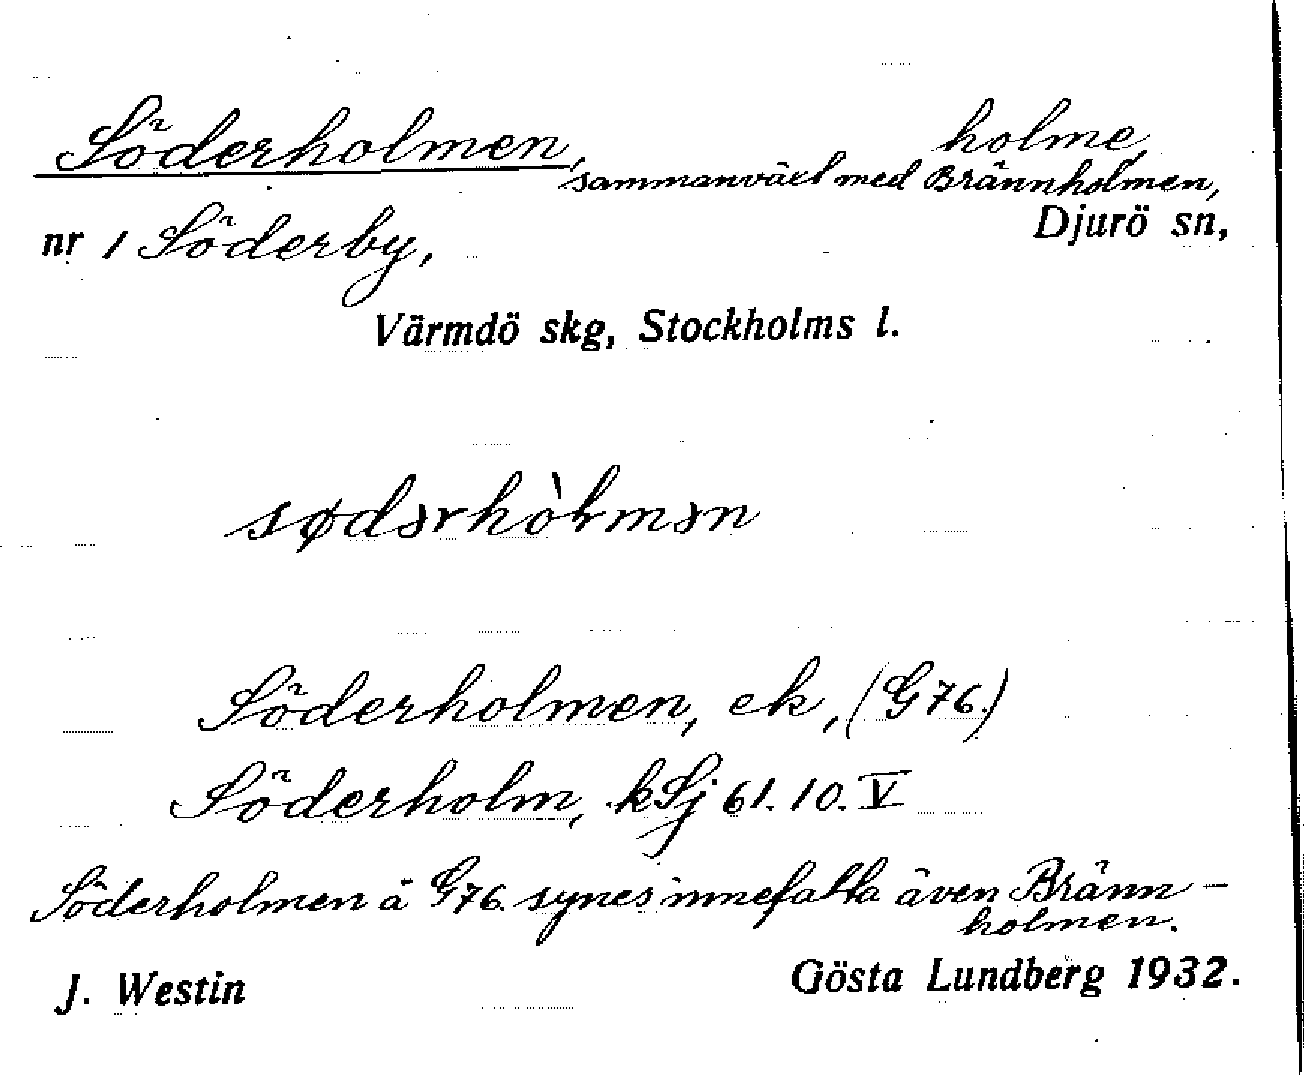 Söderholmen, holme,
sammanväxt med Brännholmen,
nr 1 Söderby, Djurö sn,
Värmdö skg, Stockholms l.
sødərhòlmən
Söderholmen, ek, (G76.)
Söderholm, kSj 61. 10. V
Söderholmen å G76. synes innefatta även Bränn-
holmen.
J. Westin Gösta Lundberg 1932.